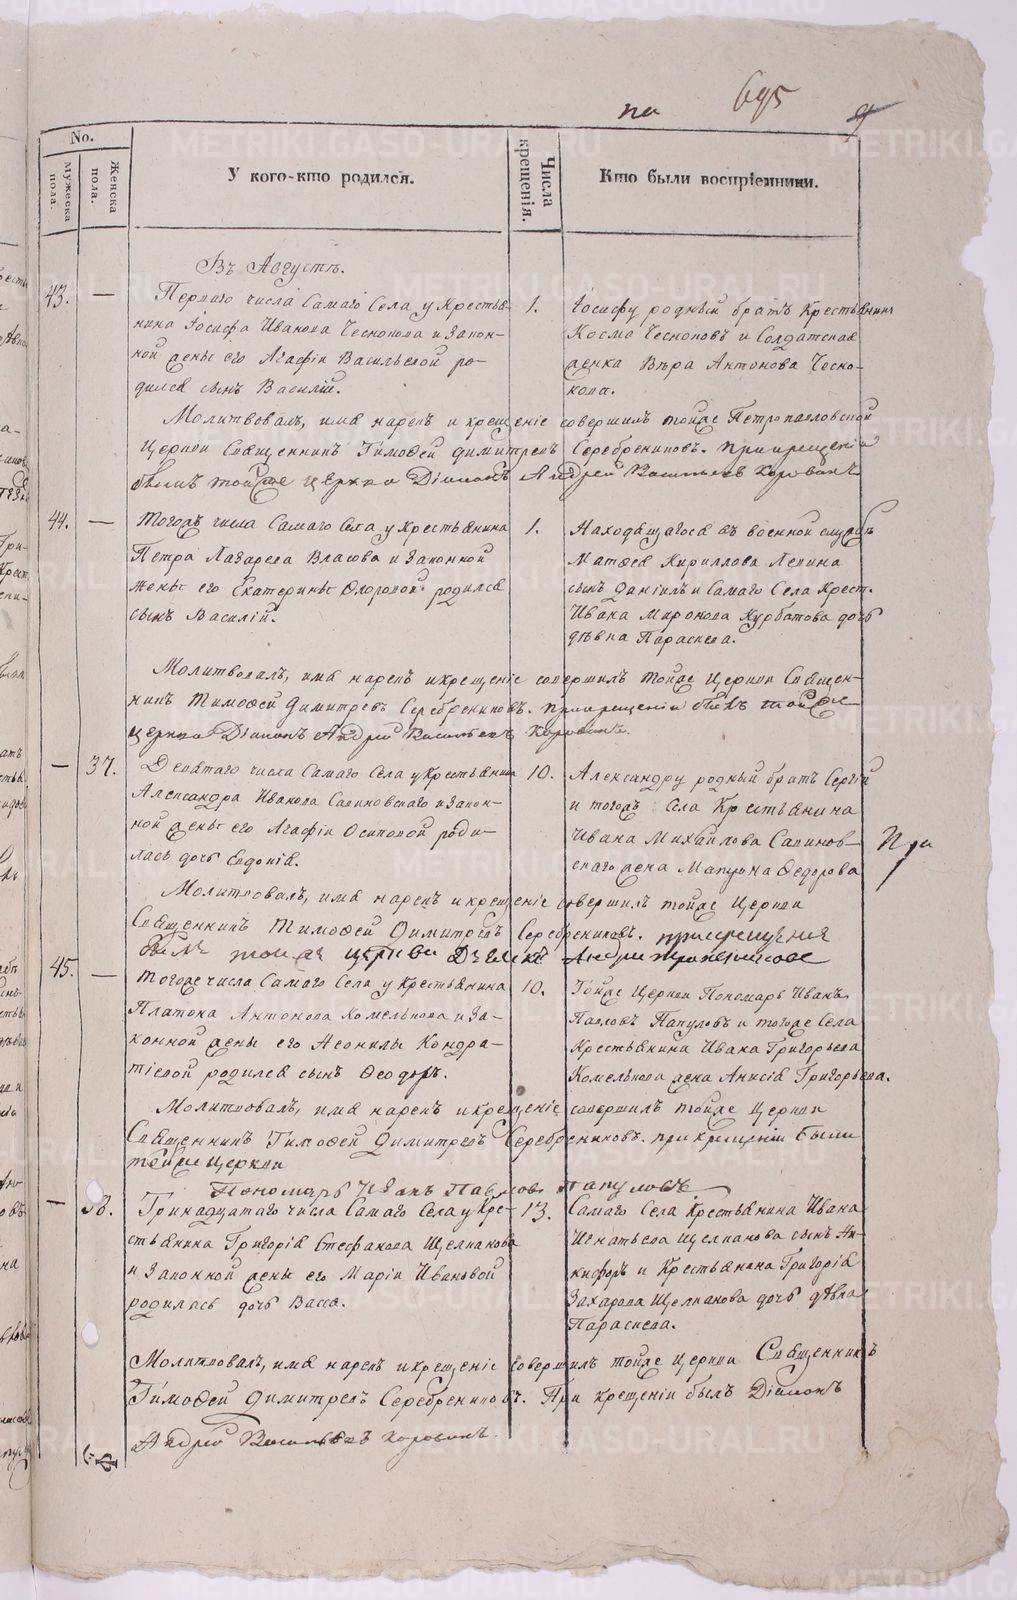 па 695
No.
Мужеска пола.
Женска пола.
У кого-кто родился.
Числа крещенія.
Кто были воспріемники.
Въ Августѣ.
43. —
Перваго числа Самаго Села, у Крестья-
нина Іосифа Иванова Чеснокова и закон-
ной жены его Агафіи Васильевой ро-
дился сынъ Василій.
1.
Іосифу родный братъ Крестьянинъ
Косма Чесноковъ и Солдатская
женка Вѣра Антонова Чесно-
кова.
Молитвовалъ, имя нарекъ и крещеніе совершилъ тойже Петропавловской
Церкви Священникъ Тимофей Димитревъ Серебрениковъ. При крещеніи
былъ тойже церкви Діаконъ Андрей Васильевъ Коровинъ
44. —
Тогожъ числа Самаго Села у Крестьянина
Петра Лазарева Власова и законной
жены его Екатерины Ѳедоровой родился
сынъ Василій.
1.
Находящагося въ военной службѣ
Матѳея Кириллова Лепина
сынъ Даніилъ и Самаго Села Крест.
Ивана Миронова Курбатова дочь
дѣвка Параскева.
Молитвовалъ, имя нарекъ и крещеніе совершилъ тойже Церкви Священ-
никъ Тимофей Димитревъ Серебрениковъ. при крещеніи былъ тойже
церкви Діаконъ Андрей Васильевъ Коровинъ.
— 37.
Девятаго числа Самаго Села у Крестьянина
Александра Иванова Салиновскаго и закон-
ной жены его Агафіи Осиповой роди-
лась дочь Евдокія.
10.
Александру родный братъ Сергій
и тогожъ Села Крестьянина
Ивана Михайлова Салинов-
скаго жена Матрона Ѳедорова
При
Молитвовалъ, имя нарекъ и крещеніе совершилъ тойже Церкви
Священникъ Тимофей Димитревъ Серебрениковъ. при крещения
тойже церкви
45. —
Тогоже числа Самаго Села у Крестьянина
Платона Антонова Комелькова и за-
конной жены его Неонилы Кондра-
тіевой родился сынъ Ѳеодоръ.
10.
Тойже Церкви Пономарь Иванъ
Павловъ Папуловъ и тогоже Села
Крестьянина Ивана Григорьева
Комелькова жена Анисія Григорьева.
Молитвовалъ, имя нарекъ и крещеніе совершилъ тойже Церкви
Священникъ Тимофей Димитревъ Серебрениковъ. при крещеніи были
тойже Церкви
Пономарь Иванъ Павловъ Папуловъ
— 38.
Тринадцатаго числа Самаго Села у Кре-
стьянина Григорія Стефанова Щелканова
и Законной жены его Маріи Ивановой
родилась дочь Васса.
13.
Самаго Села Крестьянина Ивана
Игнатьева Щелканова сынъ Ни-
кифоръ и Крестьянина Григорія
Захарова Щелканова дочь дѣвка
Параскева.
Молитвовалъ, имя нарекъ и крещеніе совершилъ тойже Церкви Священникъ
Тимофей Димитревъ Серебрениковъ. При крещеніи былъ Діаконъ
Андрей Васильевъ Коровинъ.
METRIKI.GASO-URAL.RU